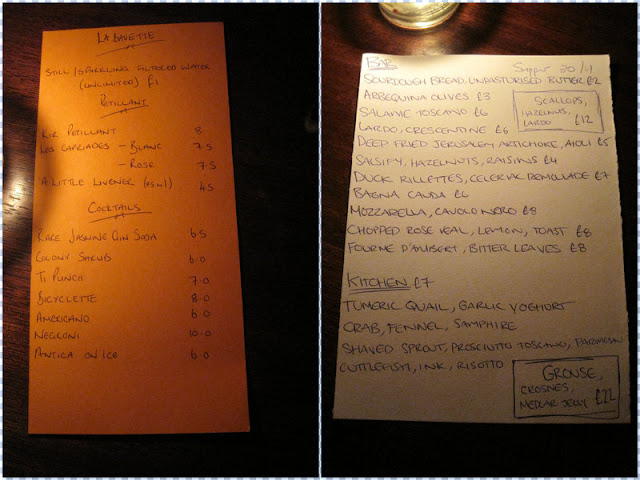 LA BUVETTE
STILL/SPARKLING FILTERED WATER
(UNLIMITED) £1
PETILLANT
KIR PETILLANT 8
LES CAPRIADES - BLANC 7.5
- ROSE 7.5
A LITTLE LIVENER (75ml) 4.5
COCKTAILS
RARE JASMINE GIN SODA 6.5
COLONY SHRUB 6.0
TI PUNCH 7.0
BICYCLETTE 8.0
AMERICANO 6.0
NEGRONI 10.0
ANTICA ON ICE 6.0
BAR
Supper 20/11
SOURDOUGH BREAD, UNPASTURISED BUTTER £2
ARBEQUINA OLIVES £3
SALAME TOSCANO £6
LARDO, CRESCENTINE £6
SCALLOPS,
HAZELNUTS,
LARDO £12
DEEP FRIED JERUSALEM ARTICHOKE, AIOLI £5
SALSIFY, HAZELNUTS, RAISINS £4
DUCK RILLETTES, CELERIAC REMOULADE £7
BAGNA CAUDA £6
MOZZARELLA, CAVOLO NERO £8
CHOPPED ROSE VEAL, LEMON, TOAST £8
FOURME D'AMBERT, BITTER LEAVES £8
KITCHEN £7
TUMERIC QUAIL, GARLIC YOGHURT
CRAB, FENNEL, SAMPHIRE
SHAVED SPROUT, PROSCIUTTO TOSCANO, PARMESAN
CUTTLEFISH, INK, RISOTTO
GROUSE,
CROSNES,
MEDLAR JELLY £22